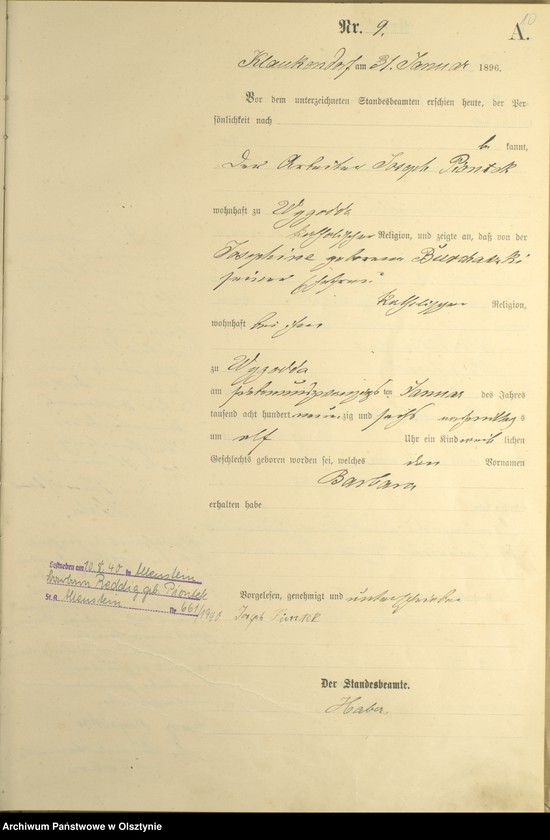 10
Nr. 9. A.
Klaukendorf am 31. Januar 1896.
Vor dem unterzeichneten Standesbeamten erschien heute, der Per-
sönlichkeit nach
be kannt,
der Arbeiter Joseph Piontek
wohnhaft zu Wygodda
katholischer Religion, und zeigte an, daß von der
Josephine geborenen
seiner Ehefrau
katholischer Religion,
wohnhaft bei ihm
zu Wygodda
am siebenundzwanzigsten Januar des Jahres
tausend acht hundert neunzig und sechs s
um elf Uhr ein Kind weib lichen
Geschlechts geboren worden sei, welches den Vornamen
Barbara
erhalten habe
Gestorben am 10.8.40 in Allenstein
Barbara Reddig geb. Piontek
St.A. Allenstein Nr. 661/1940
Vorgelesen, genehmigt und unterschrieben
Joseph Piontek
Der Standesbeamte.
Haber.
Archiwum Państwowe w Olsztynie